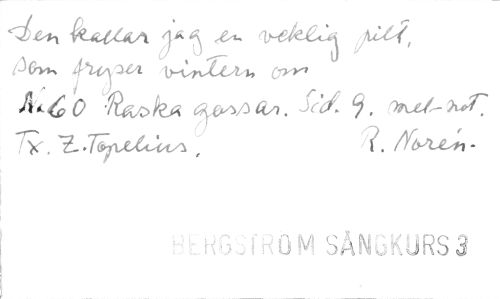 Den kallar jag en veklig pilt,
som fryser vintern om
N:60 Raska gossar. Sid. 9. mel-not.
Tx. Z. Topelius. R. Norén.
BERGSTRÖM SÅNGKURS 3